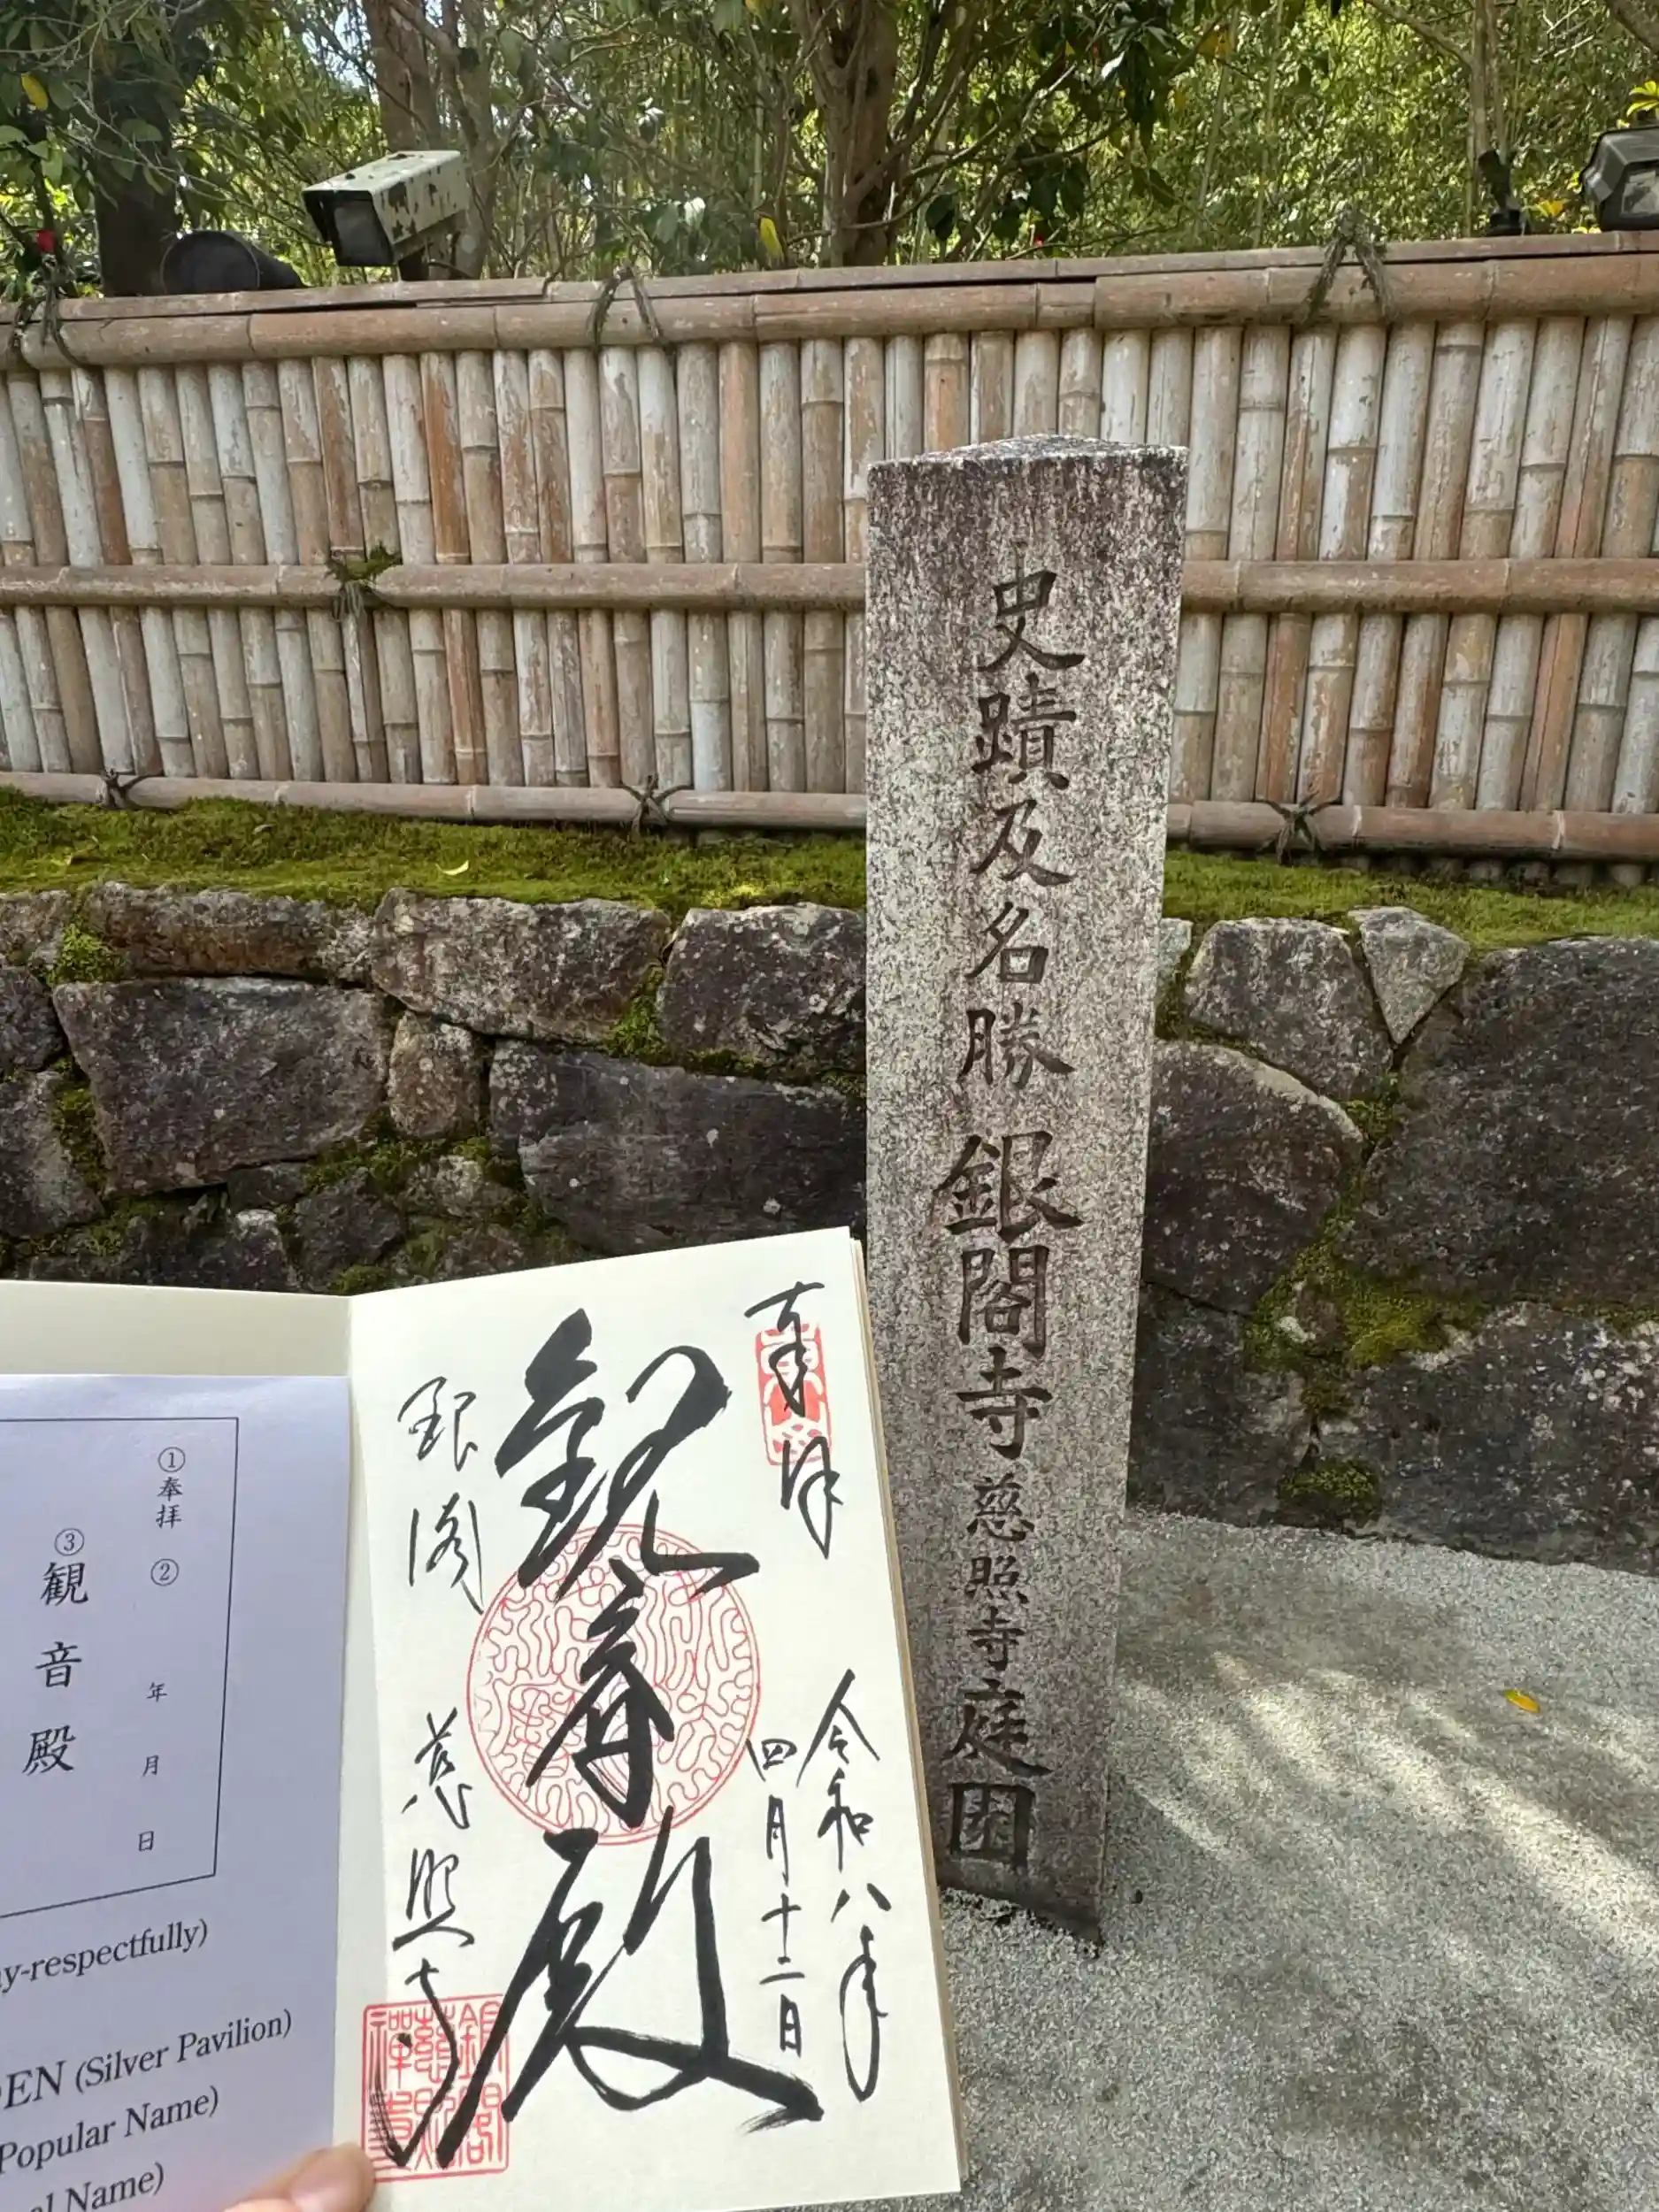 史蹟及名勝 銀閣寺慈照寺庭園
奉拝
令和八年
四月十二日
観音殿
銀閣
慈照寺
①奉拝 ② 年 月 日
③観音殿
y-respectfully)
EN (Silver Pavilion)
Popular Name)
al Name)